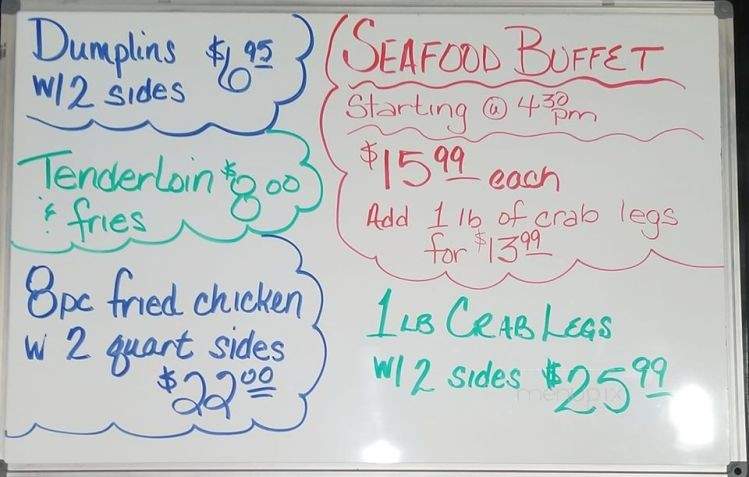 Dumplins $6.95
w/2 sides
Tenderloin $8.00
& fries
8pc fried chicken
w 2 quart sides
$22.00
SEAFOOD BUFFET
Starting @ 4:30 pm
$15.99 each
Add 1 lb of crab legs
for $13.99
1 LB CRAB LEGS
w/2 sides $25.99
menupix